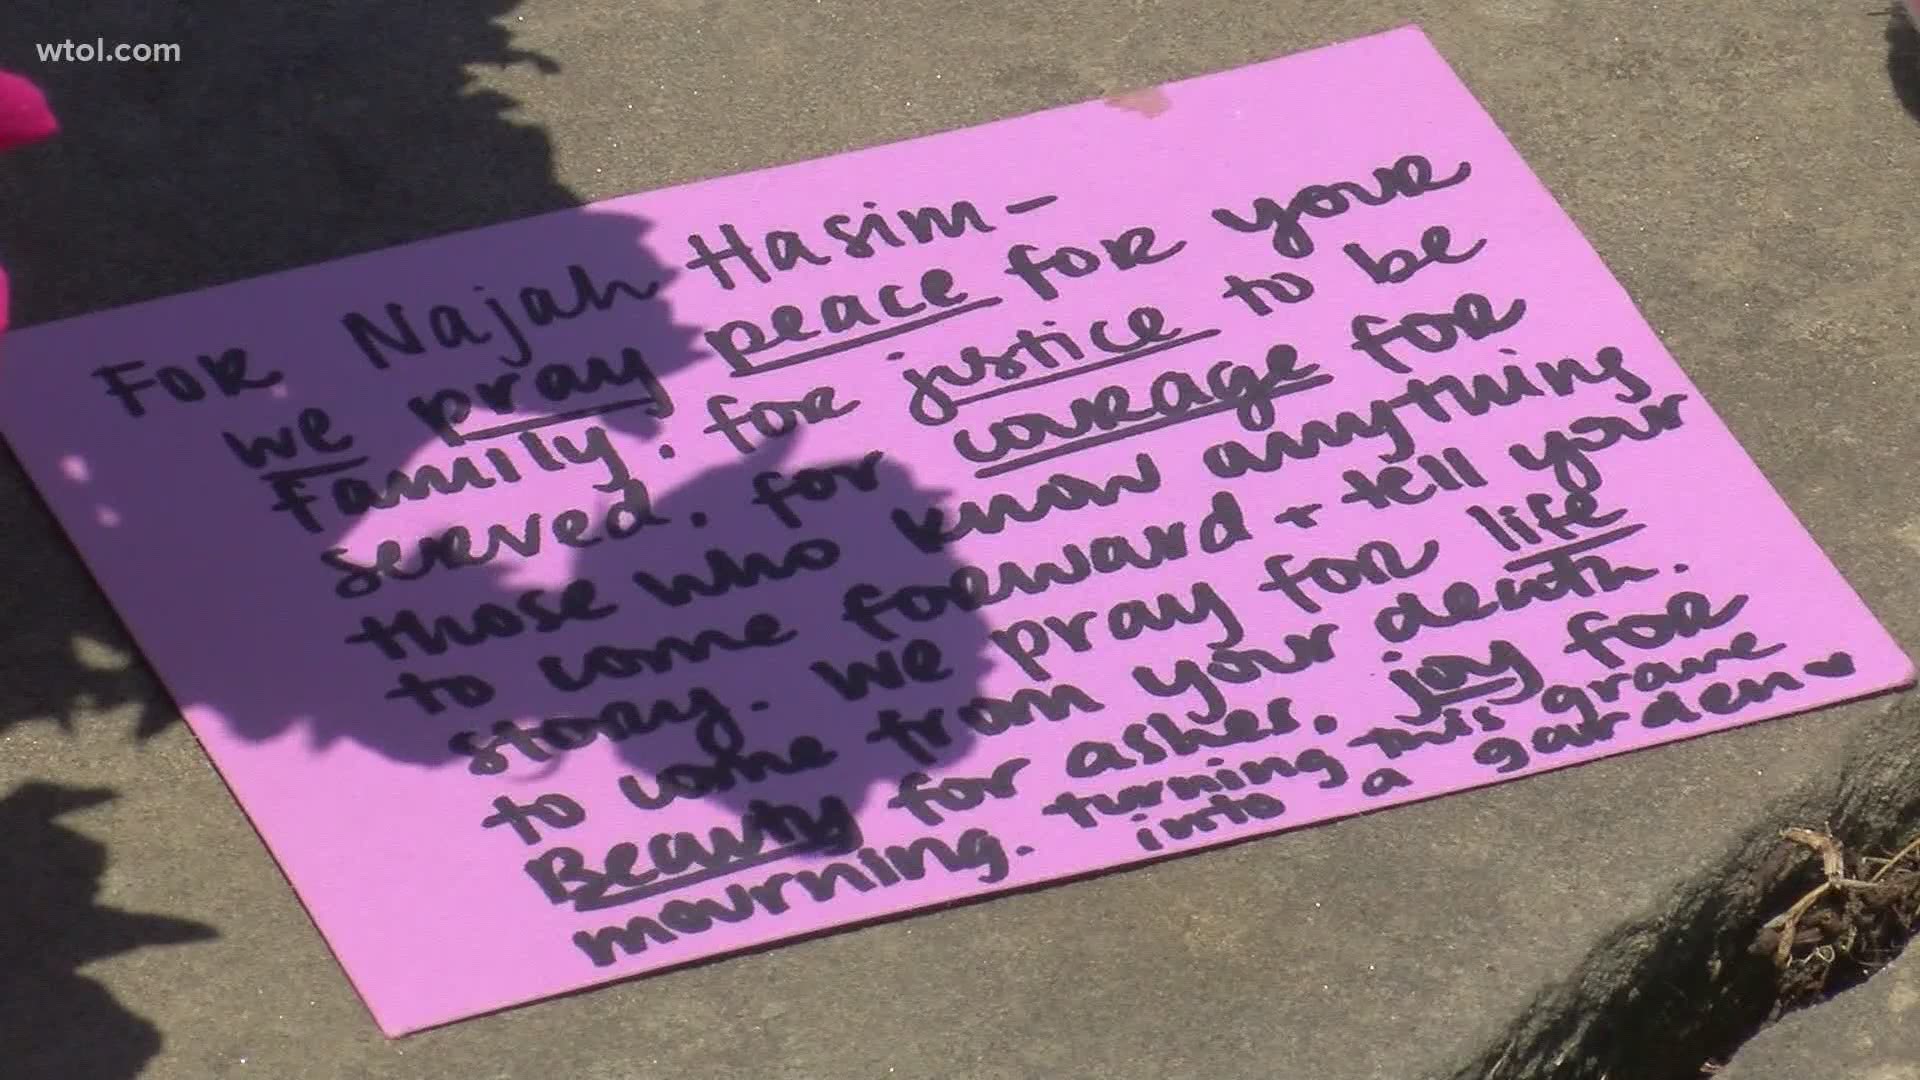 wtol.com
For Najah Hasim -
we pray peace for your
family. for justice to be
served. for courage for
those who know anything
to come forward + tell your
story. we pray for life
to come from your death.
Beauty for ashes. joy for
mourning. turning this grave
into a garden ♥